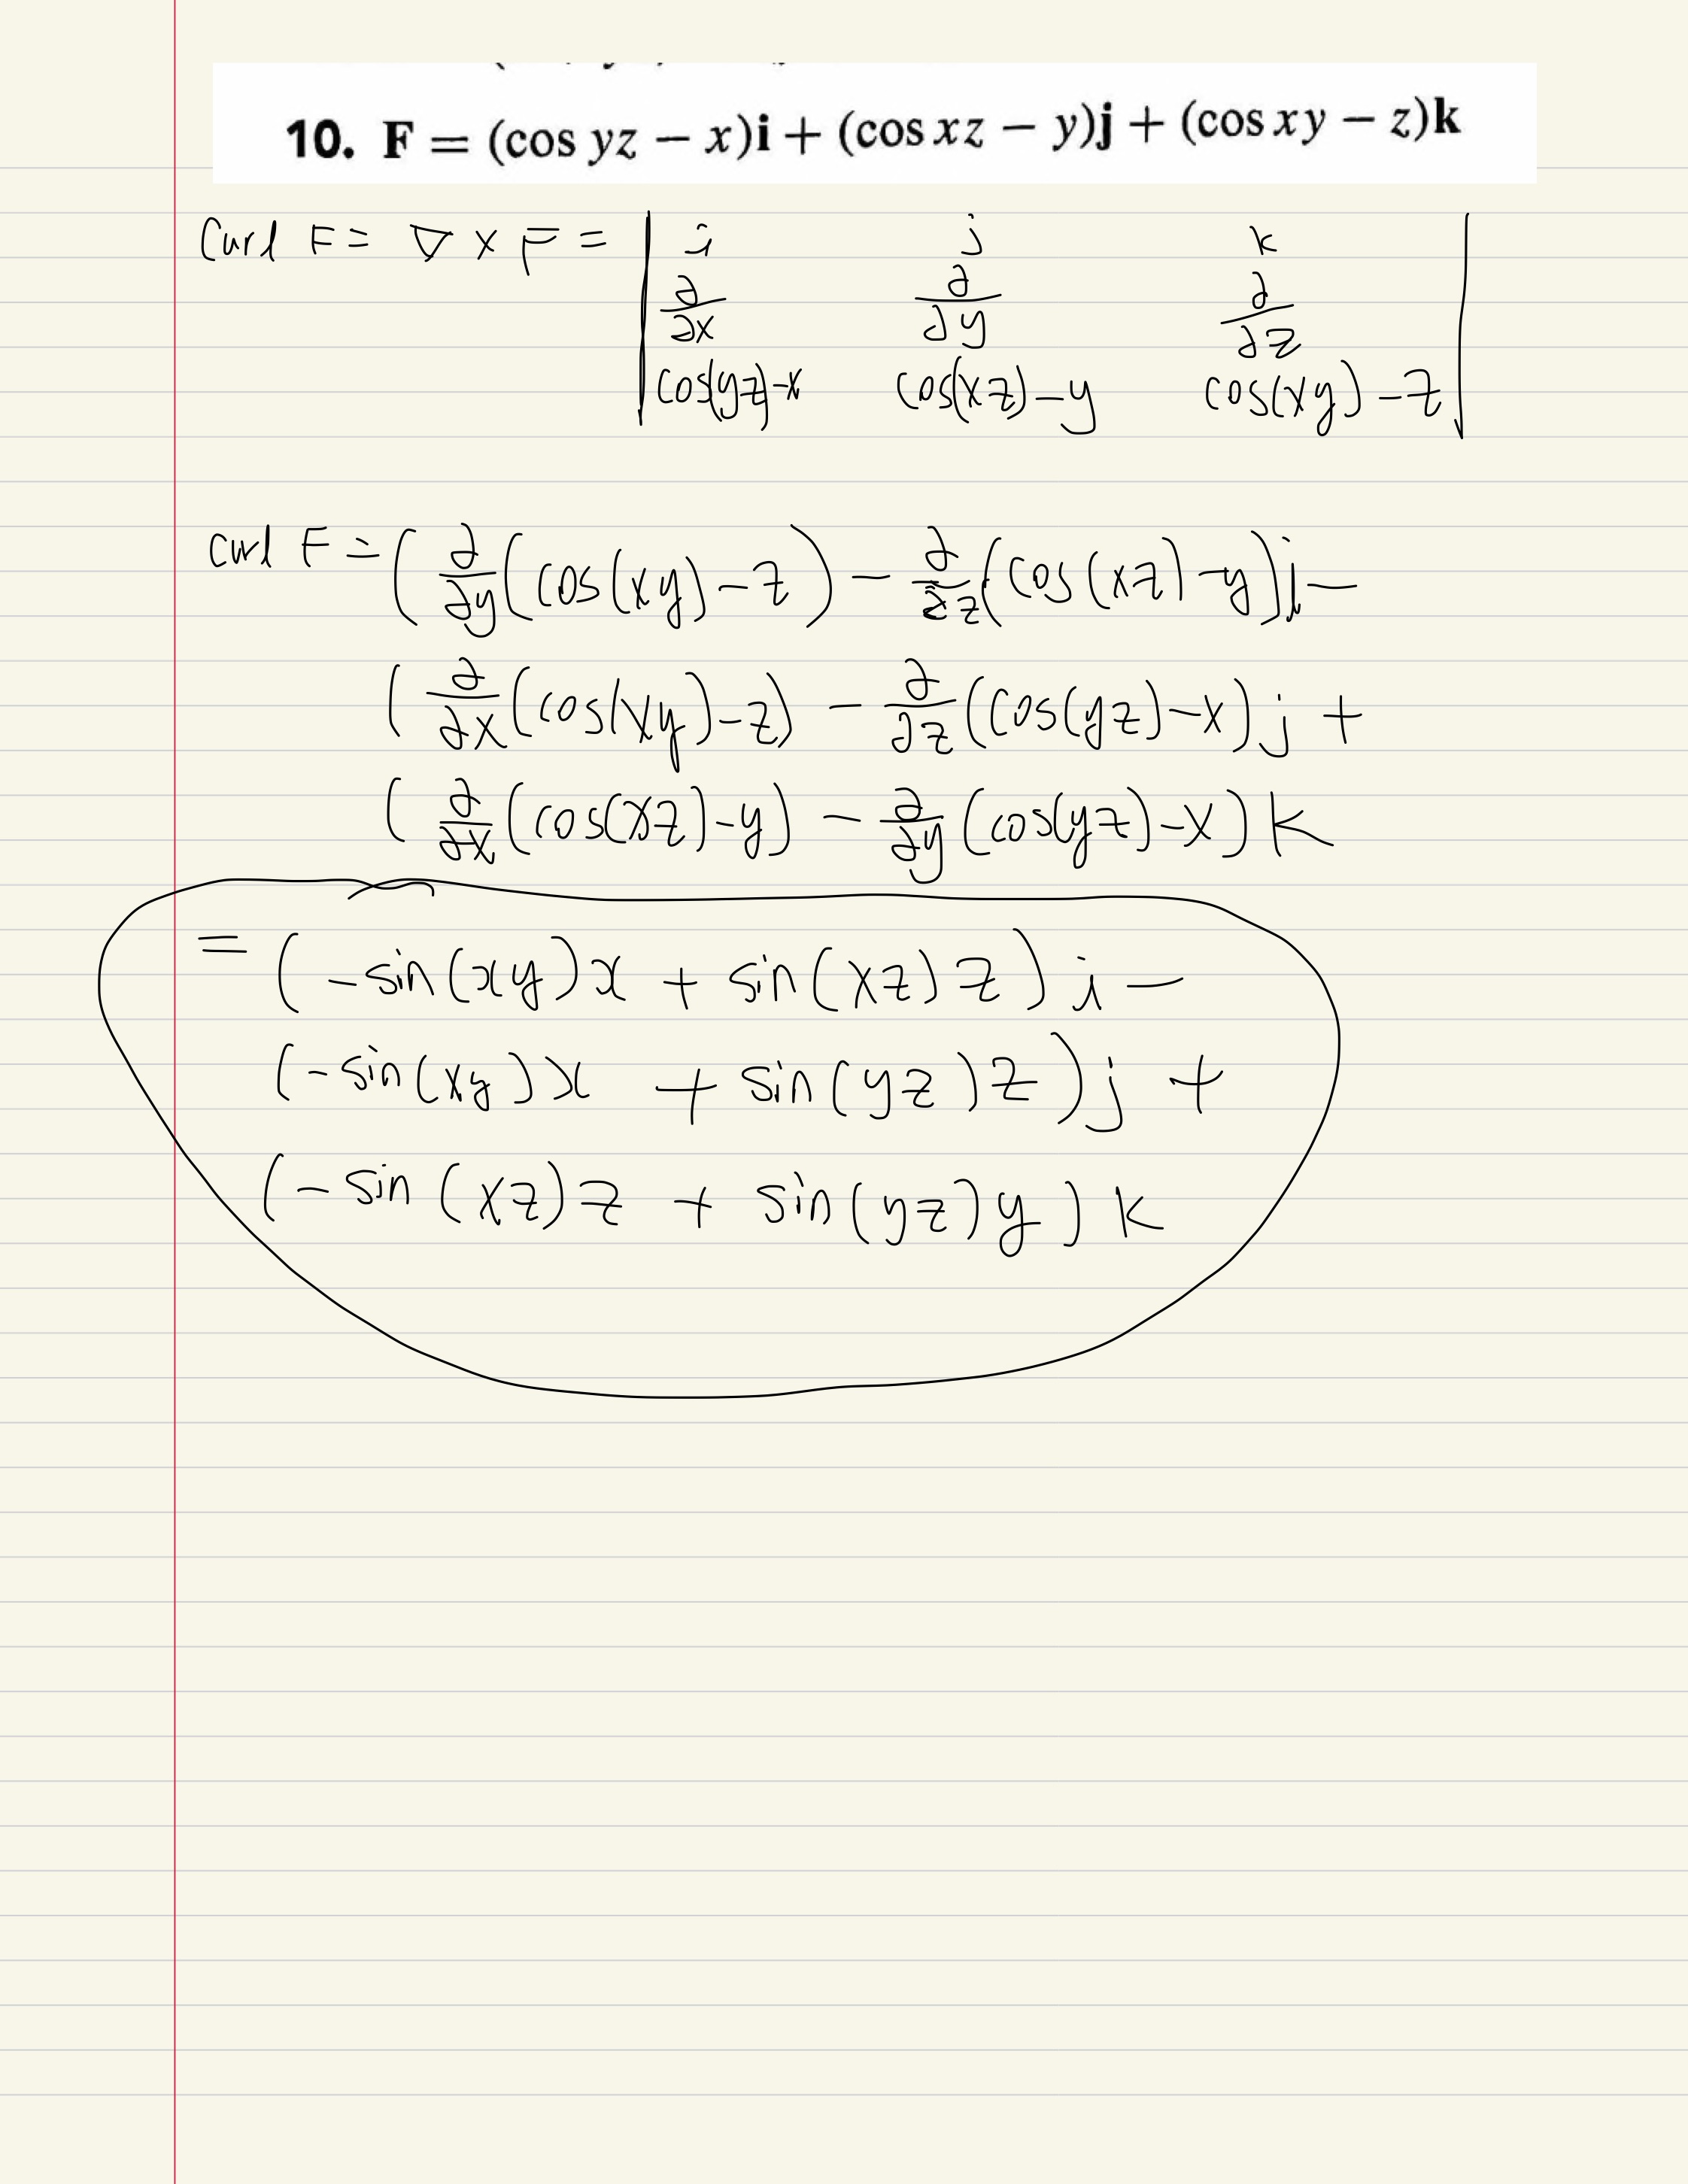 10. F = (cos yz − x)i + (cos xz − y)j + (cos xy − z)k
Curl F = ∇ × F = | i j k
∂/∂x ∂/∂y ∂/∂z
cos(yz)-x cos(xz)-y cos(xy)-z |
curl F = (∂/∂y(cos(xy)-z) - ∂/∂z(cos(xz)-y)i -
(∂/∂x(cos(xy)-z) - ∂/∂z(cos(yz)-x)j +
(∂/∂x(cos(xz)-y) - ∂/∂y(cos(yz)-x)k
= (-sin(xy)x + sin(xz)z)i -
(-sin(xy)x + sin(yz)z)j +
(-sin(xz)z + sin(yz)y)k